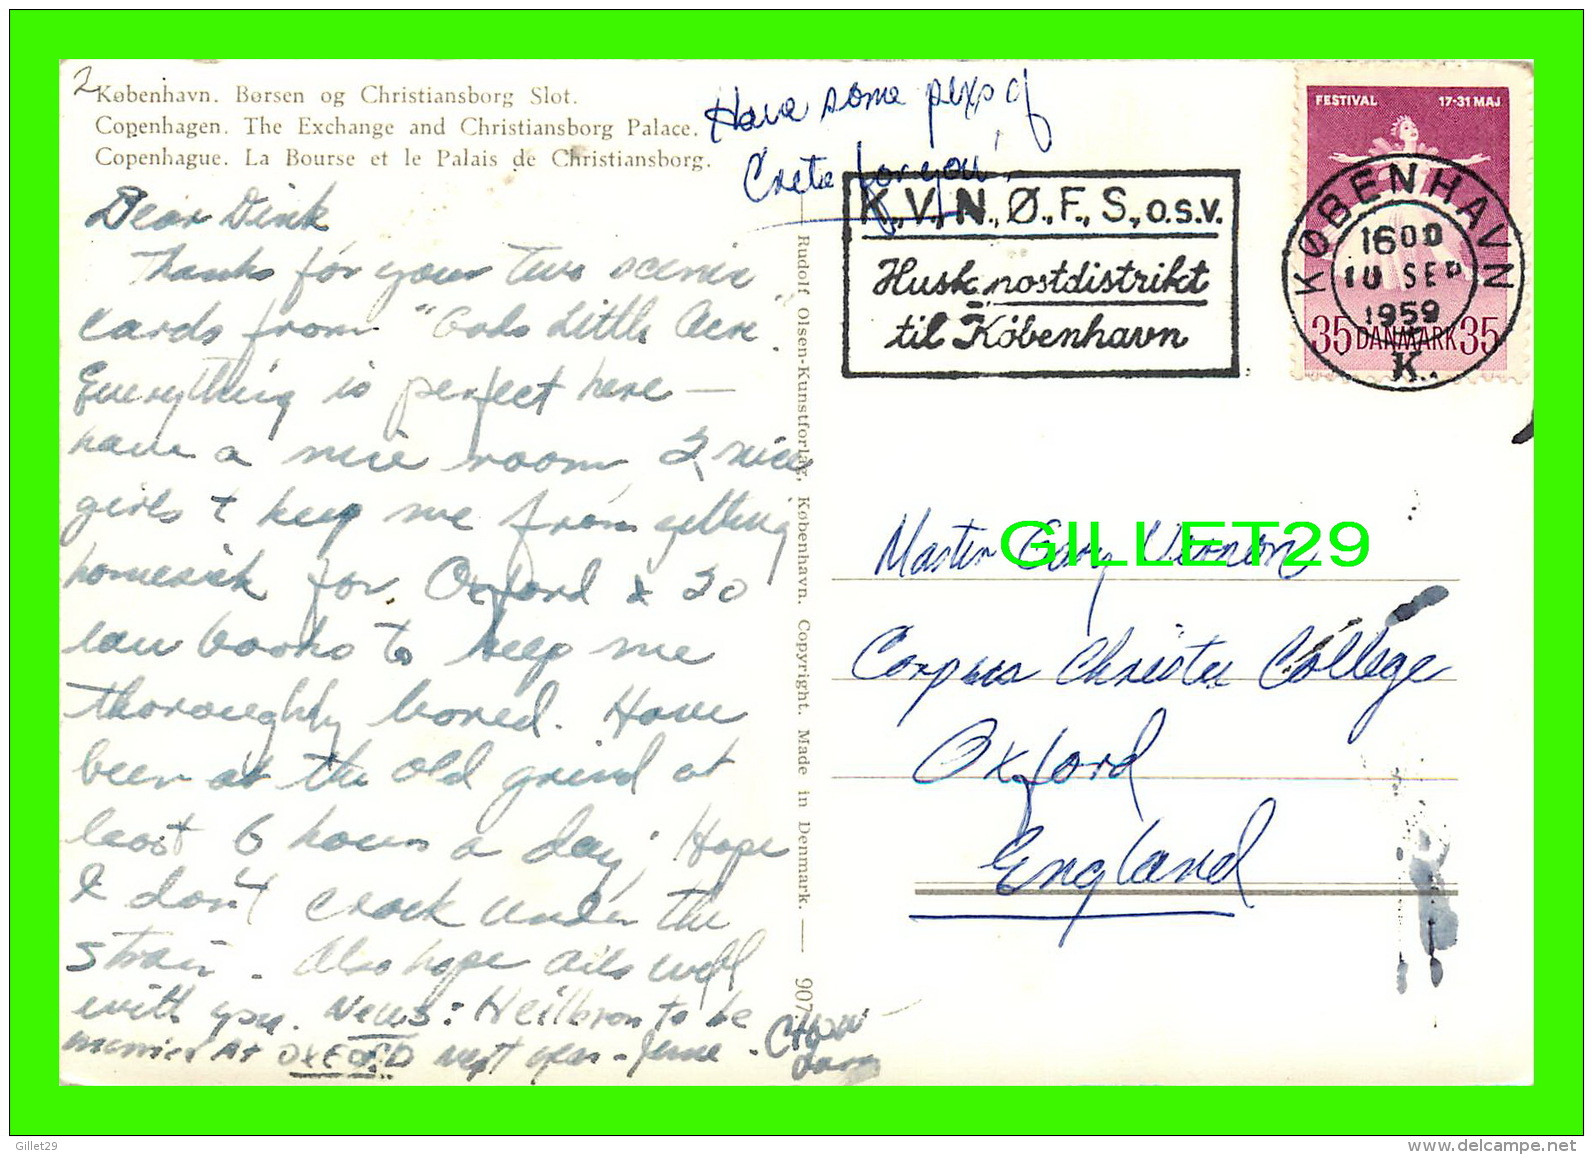 2
København. Børsen og Christiansborg Slot.
Copenhagen. The Exchange and Christiansborg Palace.
Copenhague. La Bourse et le Palais de Christiansborg.
Have some pixs of
Crete for you!
Dear Dink
Thanks for your two scenic
cards from "Gods Little Acre".
Everything is perfect here —
have a nice room 2 nice
girls to keep me from getting
homesick for Oxford & 20
law books to keep me
thoroughly bored. Have
been at the old grind at
least 6 hours a day. Hope
I don't crack under the
strain. Also hope all's well
with you. News: Heilbron to be
married At OXFORD next year - June.
Rudolf Olsen-Kunstforlag, København. Copyright. Made in Denmark. — 907
K., V., N., Ø., F., S., o.s.v.
Husk postdistrikt
til København
FESTIVAL 17-31 MAJ
KØBENHAVN
1600
10 SEP
1959
K.
35 DANMARK 35
Gary Vernon
GILLET29
Corpus Christi College
Oxford
England
Gillet29
www.delcampe.net